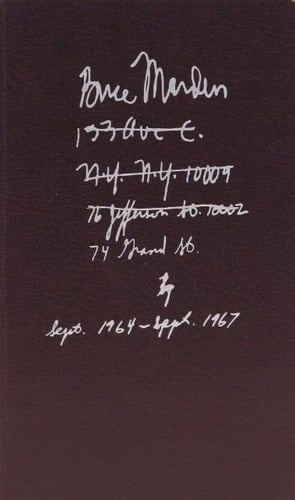 Brice Marden
133 Ave C.
N.Y. N.Y. 10009
76 Jefferson St. 10002
74 Grand St.
NY
Sept. 1964 – Sept. 1967